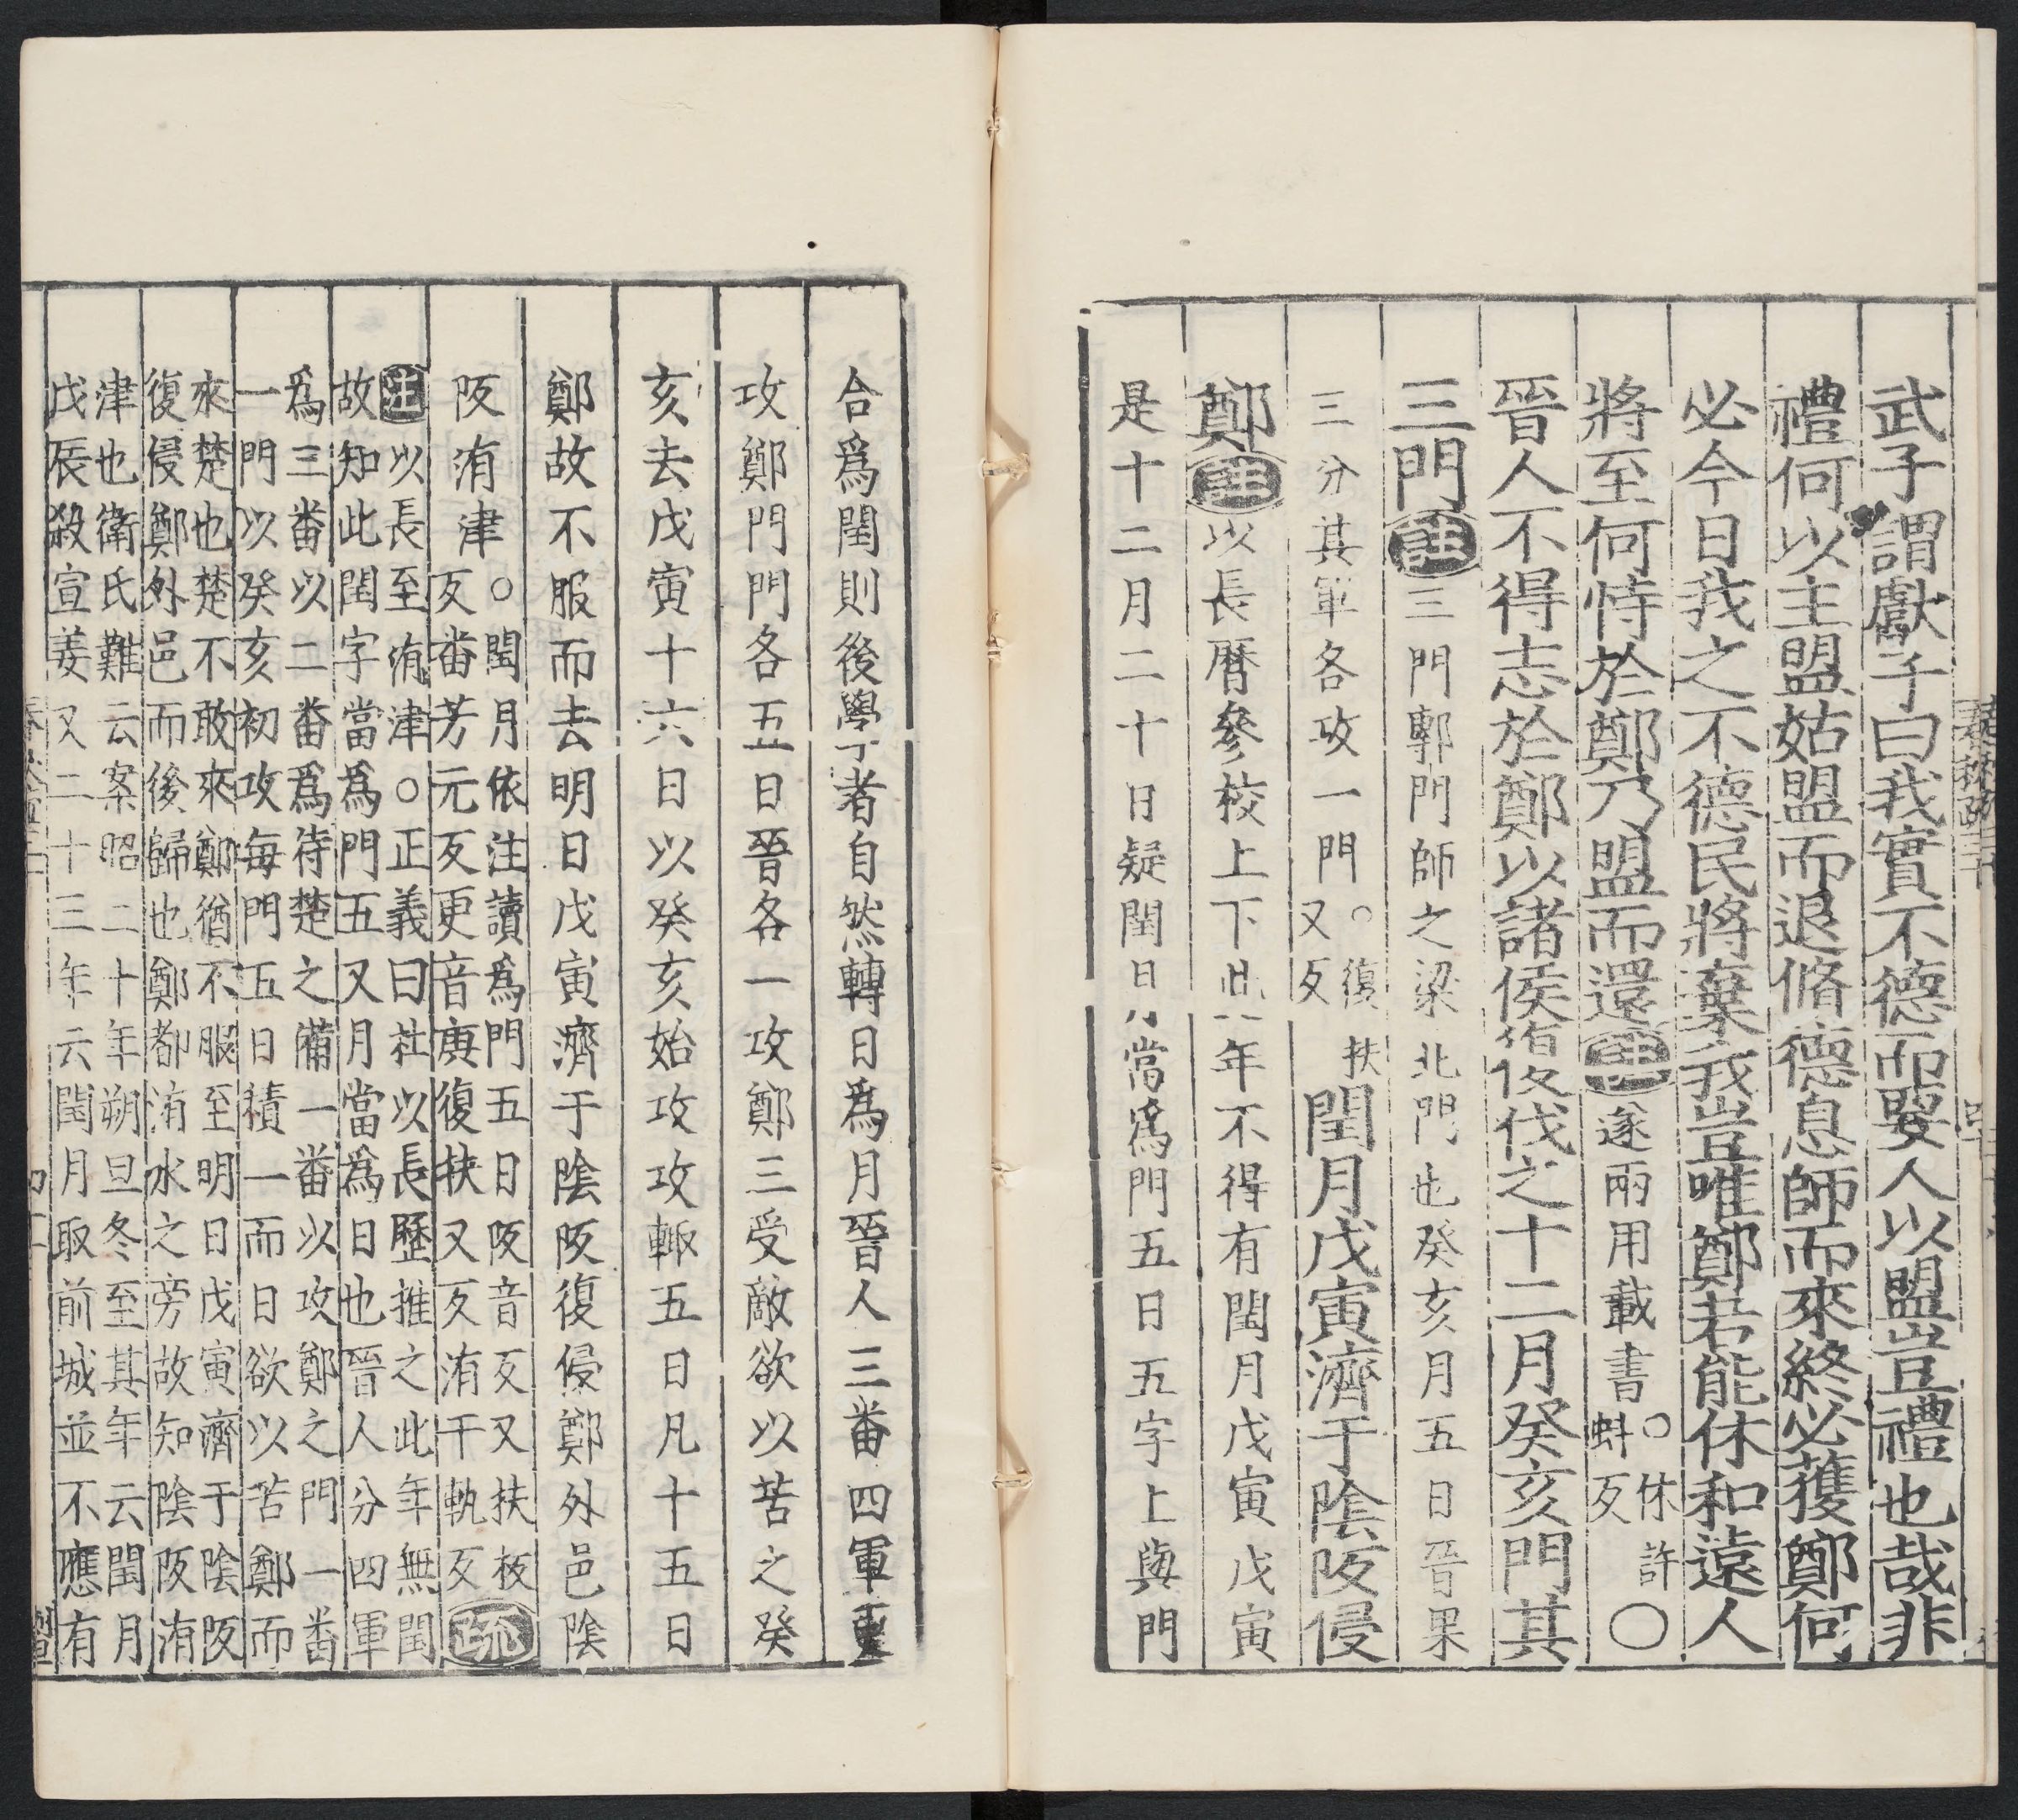 武子謂獻子曰我實不德而要人以盟豈禮也哉非
禮何以主盟姑盟而退脩德息師而來終必獲鄭何
必今日我之不德民將棄我豈唯鄭若能休和遠人
將至何恃於鄭乃盟而還註遂兩用載書○休許蚪反○
晉人不得志於鄭以諸侯復伐之十二月癸亥門其
三門註三門鄟門師之梁北門也癸亥月五日晉果
三分其軍各攻一門○復扶又反閏月戊寅濟于陰阪侵
鄭註以長曆參校上下此年不得有閏月戊寅戊寅
是十二月二十日疑閏月當爲門五日五字上與門
合爲閏則後學者自然轉日爲月晉人三番四軍更
攻鄭門門各五日晉各一攻鄭三受敵欲以苦之癸
亥去戊寅十六日以癸亥始攻攻輙五日凡十五日
鄭故不服而去明日戊寅濟于陰阪復侵鄭外邑陰
阪洧津○閏月依注讀爲門五日阪音反又扶板反番芳元反更音庚復扶又反洧于軌反疏
注以長至洧津○正義曰杜以長歷推之此年無閏
故知此閏字當爲門五又月當爲日也晉人分四軍
爲三番以二番爲待楚之備一番以攻鄭之門一番
一門以癸亥初攻每門五日積一而日欲以苦鄭而
來楚也楚不敢來鄭猶不服至明日戊寅濟于陰阪
復侵鄭外邑而後歸也鄭都洧水之旁故知陰阪洧
津也衛氏難云案昭二十年朔旦冬至其年云閏月
戊辰殺宣姜又二十三年云閏月取前城並不應有